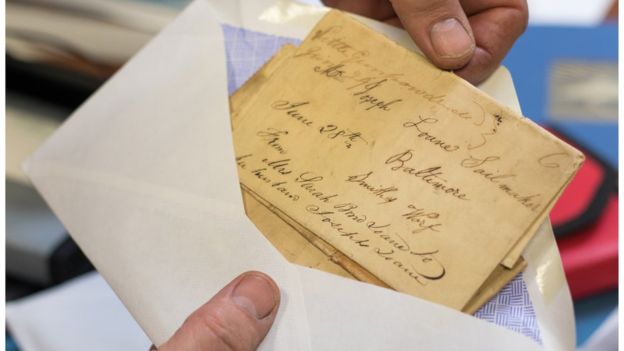 Mr Joseph Loane Sail maker
Baltimore
June 28th Smiths Warf
From
Mrs Sarah Bond Loane to
her husband Joseph Loane